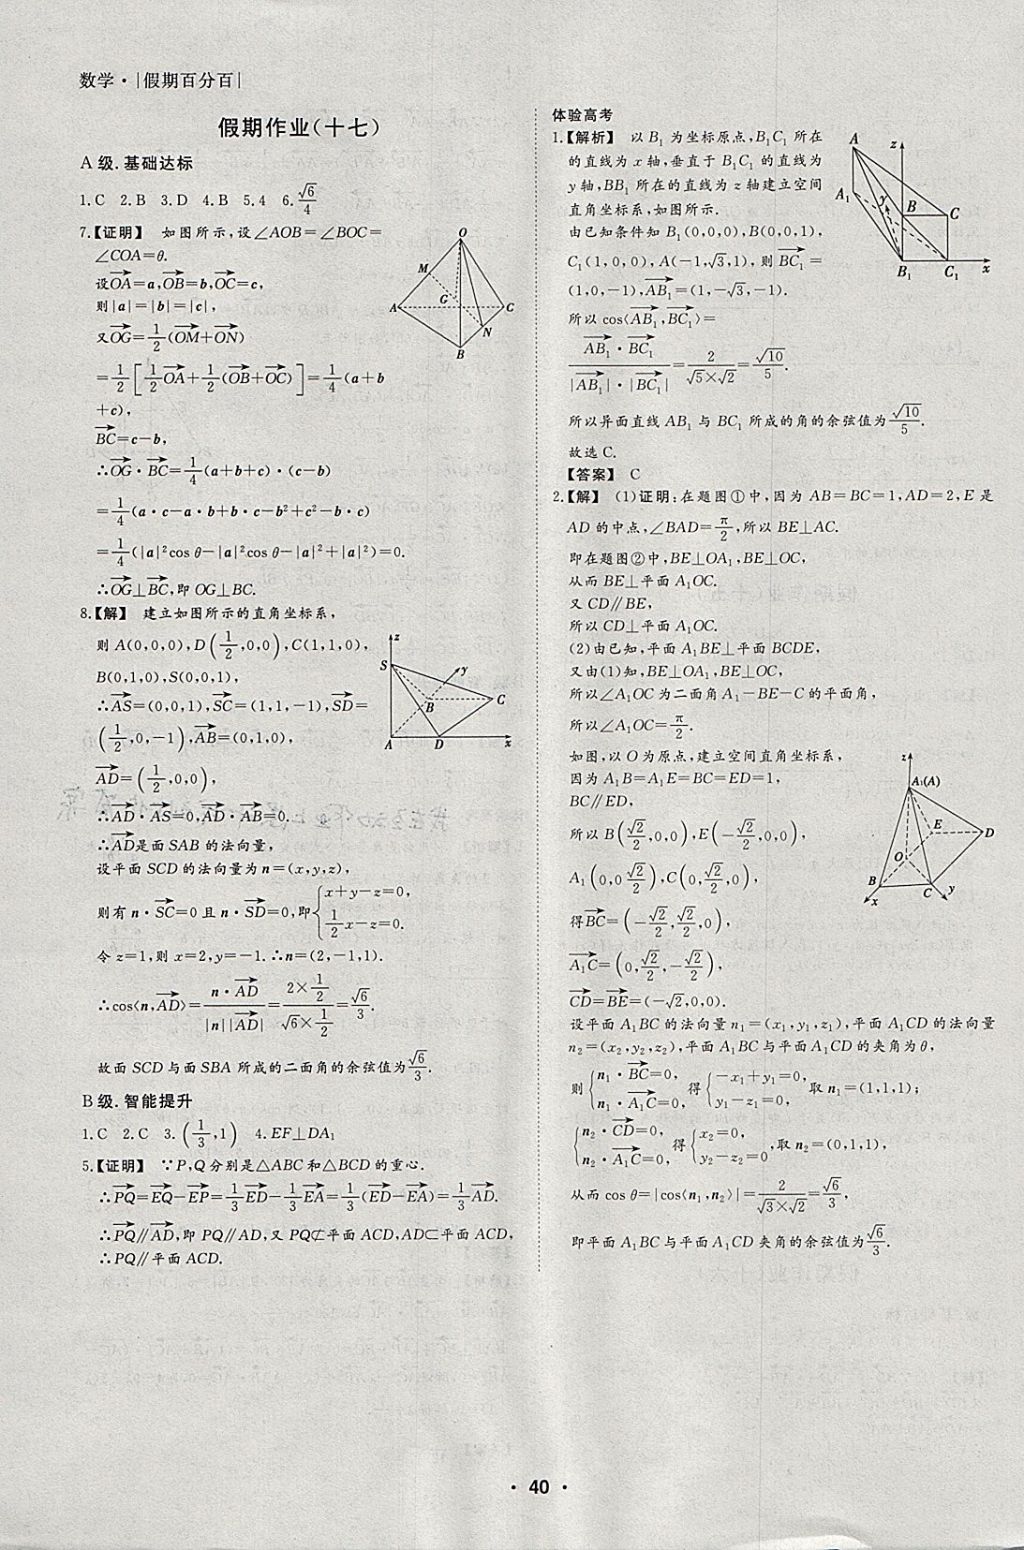 数学·|假期百分百|
假期作业(十七)
A 级.基础达标
1.C 2.B 3.D 4.B 5.4 6.√6/4
7.【证明】 如图所示,设∠AOB=∠BOC=
∠COA=θ.
设OA→=a,OB→=b,OC→=c,
则|a|=|b|=|c|,
又OG→=1/2(OM→+ON→)
=1/2[1/2OA→+1/2(OB→+OC→)]=1/4(a+b
+c),
BC→=c-b,
∴OG→·BC→=1/4(a+b+c)·(c-b)
=1/4(a·c-a·b+b·c-b²+c²-b·c)
=1/4(|a|²cos θ-|a|²cos θ-|a|²+|a|²)=0.
∴OG→⊥BC→,即 OG⊥BC.
O
M
G
A
C
N
B
8.【解】 建立如图所示的直角坐标系,
则 A(0,0,0),D(1/2,0,0),C(1,1,0),
B(0,1,0),S(0,0,1),
∴AS→=(0,0,1),SC→=(1,1,-1),SD→=
(1/2,0,-1),AB→=(0,1,0),
AD→=(1/2,0,0),
∴AD→·AS→=0,AD→·AB→=0.
∴AD→是面 SAB 的法向量,
设平面 SCD 的法向量为 n=(x,y,z),
则有 n·SC→=0 且 n·SD→=0,即{x+y-z=0,
1/2x-z=0.
令 z=1,则 x=2,y=-1.∴n=(2,-1,1).
∴cos⟨n,AD→⟩=n·AD→/|n||AD→|=(2×1/2)/(√6×1/2)=√6/3.
故面 SCD 与面 SBA 所成的二面角的余弦值为√6/3.
z
S
y
B
C
A
D
x
B 级.智能提升
1.C 2.C 3.(1/3,1) 4.EF⊥DA₁
5.【证明】 ∵P,Q 分别是△ABC 和△BCD 的重心.
∴PQ→=EQ→-EP→=1/3ED→-1/3EA→=1/3(ED→-EA→)=1/3AD→.
∴PQ→∥AD→,即 PQ∥AD,又 PQ⊄平面 ACD,AD⊂平面 ACD,
∴PQ∥平面 ACD.
体验高考
1.【解析】 以 B₁ 为坐标原点,B₁C₁ 所在
的直线为 x 轴,垂直于 B₁C₁ 的直线为
y 轴,BB₁ 所在的直线为 z 轴建立空间
直角坐标系,如图所示.
由已知条件知 B₁(0,0,0),B(0,0,1),
C₁(1,0,0),A(-1,√3,1),则BC₁→=
(1,0,-1),AB₁→=(1,-√3,-1).
所以 cos⟨AB₁→,BC₁→⟩=
AB₁→·BC₁→/|AB₁→|·|BC₁→|=2/(√5×√2)=√10/5.
所以异面直线 AB₁ 与 BC₁ 所成的角的余弦值为√10/5.
故选 C.
【答案】 C
A
z
A₁
y
B
C
B₁
C₁
x
2.【解】 (1)证明:在题图①中,因为 AB=BC=1,AD=2,E 是
AD 的中点,∠BAD=π/2,所以 BE⊥AC.
即在题图②中,BE⊥OA₁,BE⊥OC,
从而 BE⊥平面 A₁OC.
又 CD∥BE,
所以 CD⊥平面 A₁OC.
(2)由已知,平面 A₁BE⊥平面 BCDE,
又由(1)知,BE⊥OA₁,BE⊥OC,
所以∠A₁OC 为二面角 A₁-BE-C 的平面角,
所以∠A₁OC=π/2.
如图,以 O 为原点,建立空间直角坐标系,
因为 A₁B=A₁E=BC=ED=1,
BC∥ED,
所以 B(√2/2,0,0),E(-√2/2,0,0),
A₁(0,0√2/2),C(0,√2/2,0),
得BC→=(-√2/2,√2/2,0),
A₁C→=(0,√2/2,-√2/2),
CD→=BE→=(-√2,0,0).
z
A₁(A)
E
D
O
B
C
x
y
设平面 A₁BC 的法向量 n₁=(x₁,y₁,z₁),平面 A₁CD 的法向量
n₂=(x₂,y₂,z₂),平面 A₁BC 与平面 A₁CD 的夹角为 θ,
则{n₁·BC→=0, 得{-x₁+y₁=0, 取 n₁=(1,1,1);
n₁·A₁C→=0, y₁-z₁=0,
{n₂·CD→=0, 得{x₂=0, ,取 n₂=(0,1,1),
n₂·A₁C→=0, y₂-z₂=0
从而 cos θ=|cos⟨n₁,n₂⟩|=2/(√3×√2)=√6/3,
即平面 A₁BC 与平面 A₁CD 夹角的余弦值为√6/3.
· 40 ·